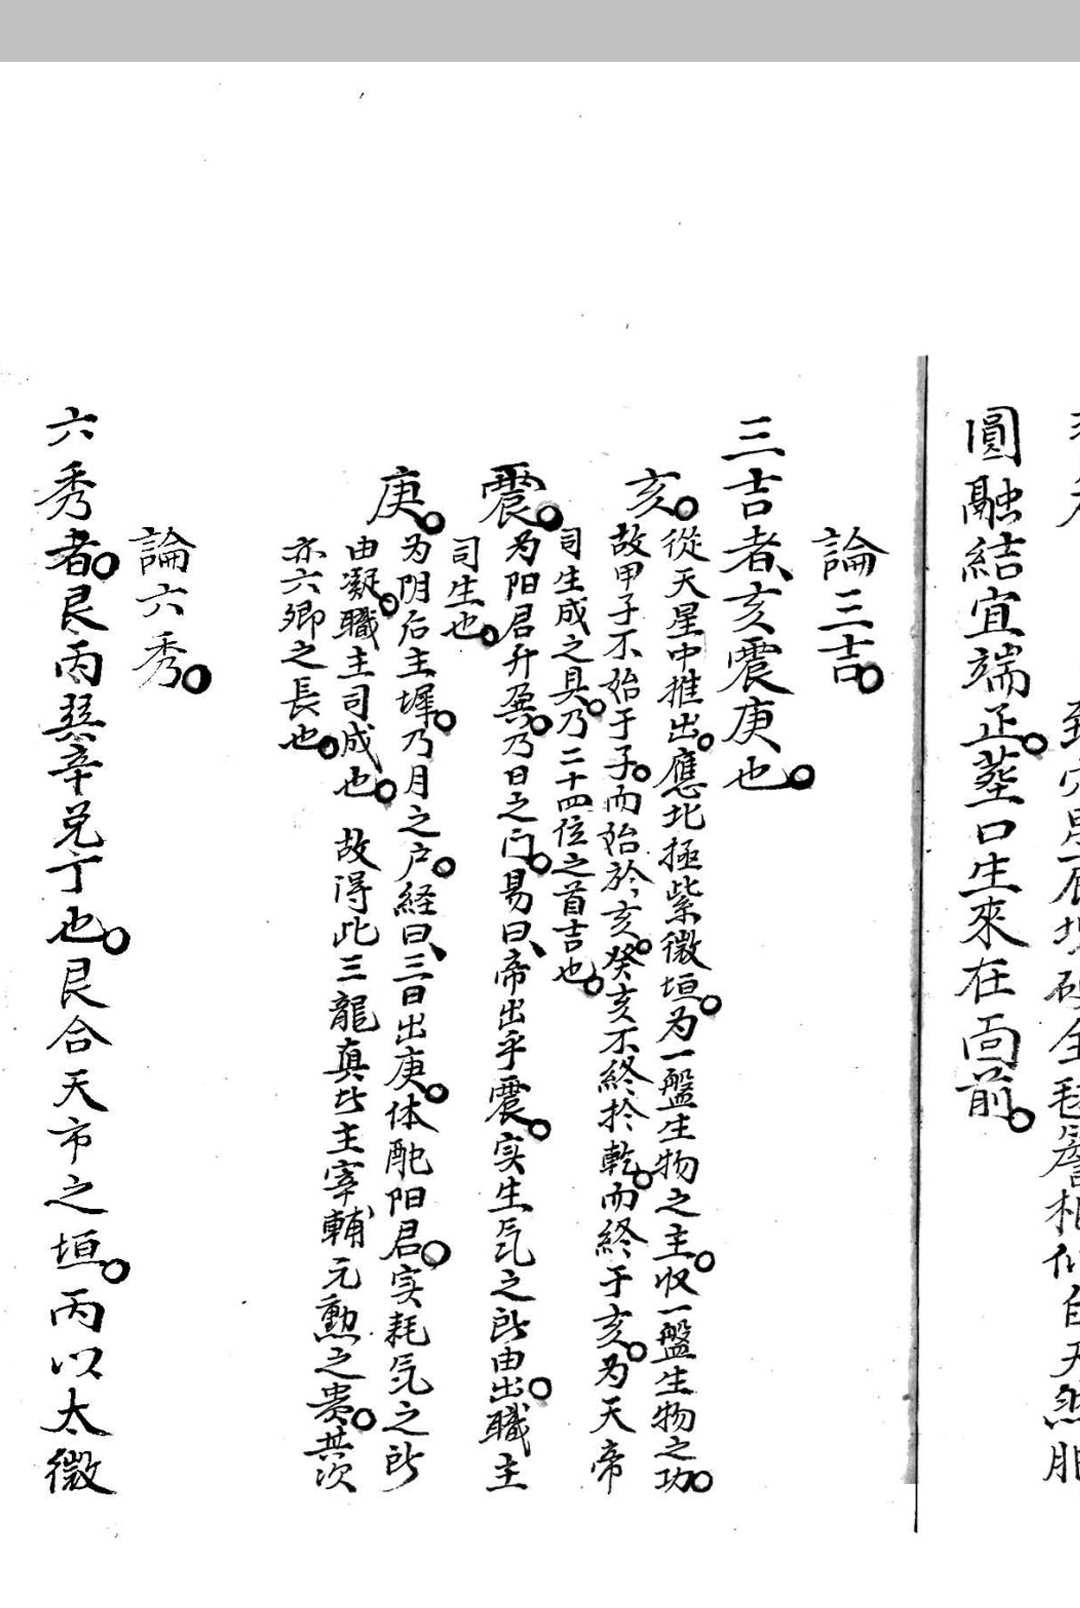 到穴
圓融結宜端正。蓥口生來在面前。
論三吉。
三吉者、亥震庚也。
亥。從天星中推出。應北極紫微垣。为一盤生物之主。収一盤生物之功。
故甲子不始于子。而始於亥。癸亥不終扵乾。而終于亥。为天帝
司生成之具。乃二十四位之首吉也。
震。为阳君升。乃日之门。易曰、帝出乎震。实生氣之所由出。職主
司生也。
庚。为阴后主墀。乃月之户。経曰、三日出庚。体配阳君。实耗氣之所
由凝。職主司成也。 故得此三龍真此主宰輔元勲之貴。其次
亦六卿之長也。
論六秀。
六秀者。艮丙巽辛兌丁也。艮合天市之垣。丙以太微